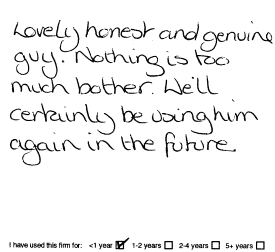 Lovely honest and genuine
guy. Nothing is too
much bother. We'll
certainly be using him
again in the future.
I have used this firm for: <1 year ☑ 1-2 years ☐ 2-4 years ☐ 5+ years ☐